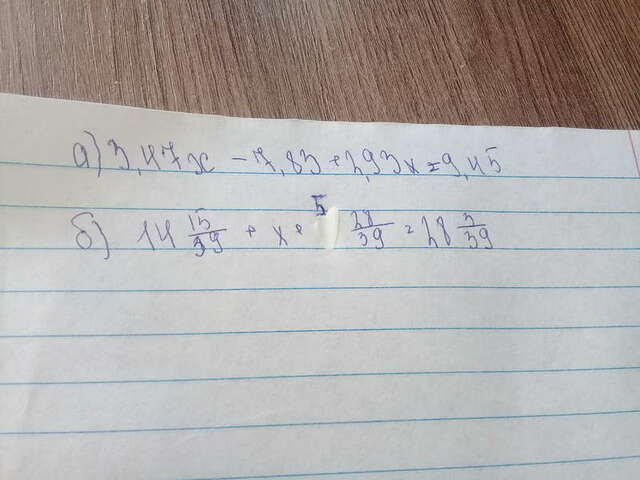 а) 3,47x - 7,83 + 2,93x = 9,45
б) 14 15/39 + x + 5 28/39 = 28 3/39